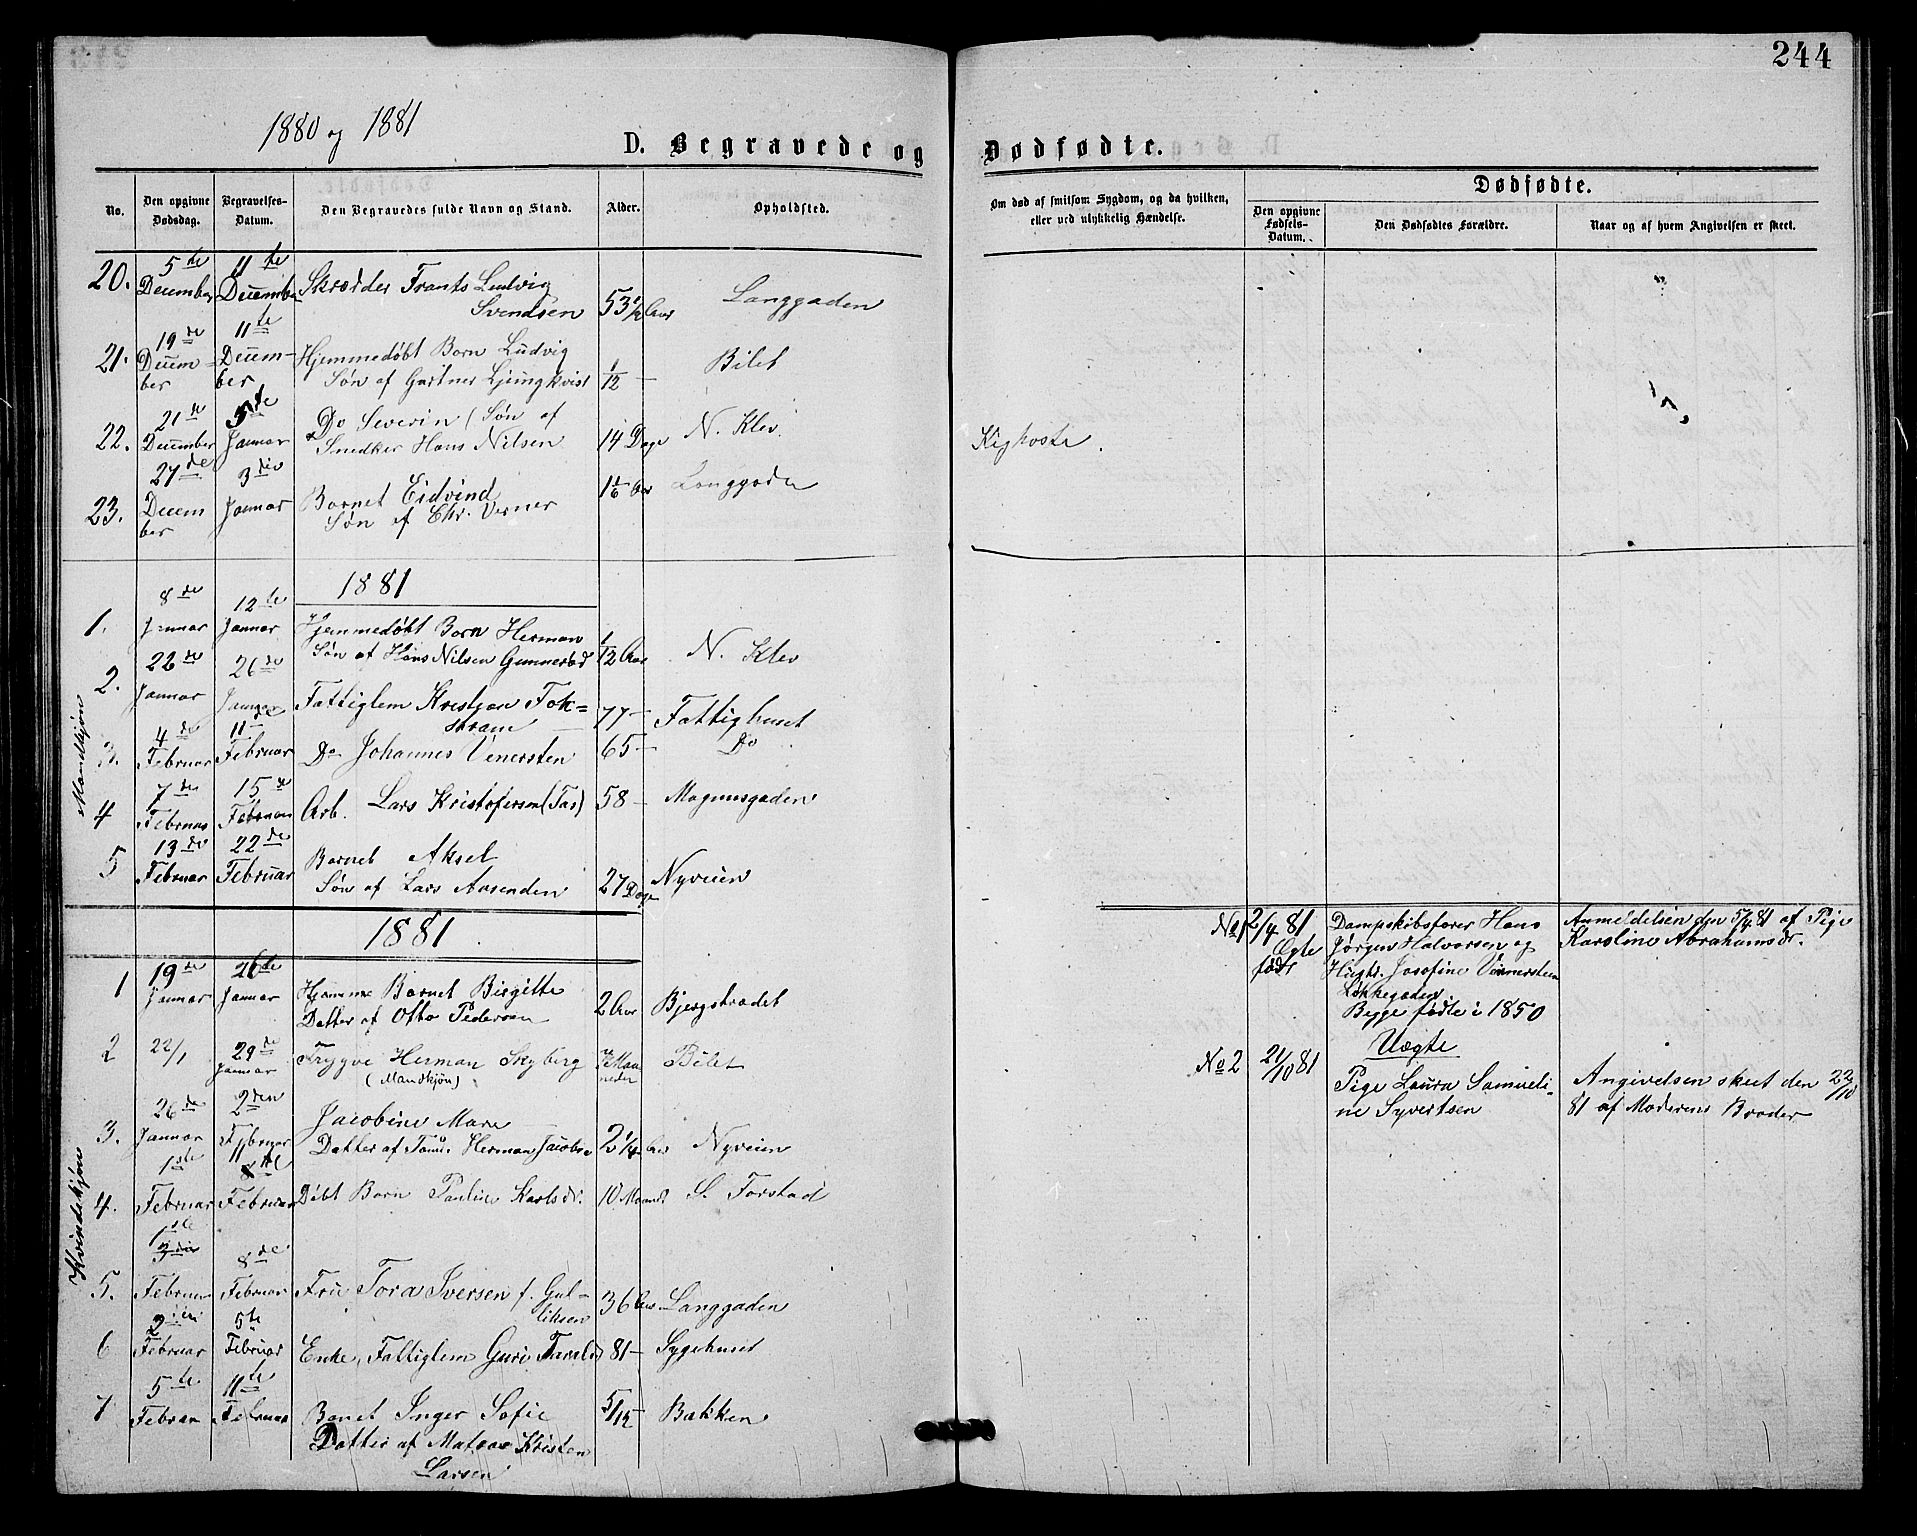 244
1880 og 1881
D. Begravede og Dødfødte.
No.
Den opgivne Dødsdag.
Begravelses-Datum.
Den Begravedes fulde Navn og Stand.
Alder.
Opholdsted.
Om død af smitsom Sygdom, og da hvilken, eller ved ulykkelig Hændelse.
Dødfødte.
Den opgivne Fødsels-Datum.
Den Dødfødtes Forældre.
Naar og af hvem Angivelsen er skeet.
20. 5te December 11te December Skrædder Frants Ludvig
Svendsen 53 1/2 Aar Langgaden
21. 19de Decem=ber 11te Decem-ber Hjemmedøbt Barn Ludvig
Søn af Gartner Ljungkvist 1/12 — Bilet
22. 21de December 5te Januar Do Severin (Søn af
Snedker Hans Nilsen 14 Dage N. Klev. Kighoste.
23. 27de Decem ber 3die Januar Barnet Eidvind
Søn af Chr. Verner 1 1/6 Aar Langgaden
1881
Mandkjøn
1. 8de Januar 12te Januar Hjemmedøbt Barn Herman
Søn af Hans Nilsen Gunnersbd 1/12 Aar N. Klev
2. 22de Januar 26de Januar Fattiglem Kristian Fok=
strøm 77 — Fattighuset
3. 4de Februar 11te Februar Do Johannes Venersten 65 — Do
4 7de Februar 15de Februar Arb. Lars Kristofersen (Tas) 58 — Magnusgaden
5 13de Februar 22de Februar Barnet Aksel
Søn af Lars Aasenden 27 Dage Nyveien
1881.
Kvindekjøn
1 19de Januar 26de Januar Hjemme Barnet Birgitte
Datter af Otto Pedersen 2 Aar Bjergstrædet
2 22/1 29de Januar Trygve Herman Skyberg
(Mandkjøn) Maaneder Bilet
3. 26de Januar 2den Februar Jacobine Mare
Datter af Tøm. Herman Jacobse 2 1/4 Aar Nyveien
4. 1ste Februar 8de Februar Døbt Barn Pauline Karlsdr. 10 Maand S. Forstad
5. 1ste Februar 8de Februar Frue Tora Iversen f. Gul-
liksen 36 Aar Langgaden
6 2den Februar 5te Februar Enke, Fattiglem Guri Taralds 81 — Sygehuset
7 5te Februar 11te Februar Banet Inger Sofie
Datter af Matros Kristen
Larsen 5/12 — Bakken
No 1 2/4 81
Ægte født
Dampskibsfører Hans
Jørgen Halvorsen og
Hustr. Josefine Vennersteen
Løkkegaden
Begge fødte i 1850
Anmeldelsen den 5/4 81 af Pige
Karoline Abrahamsdr.
Uægte
No 2 21/10 81
Pige Laura Samueli-
ne Syvertsen
Angivelsen skeet den 22/10
81 af Moderens Broder